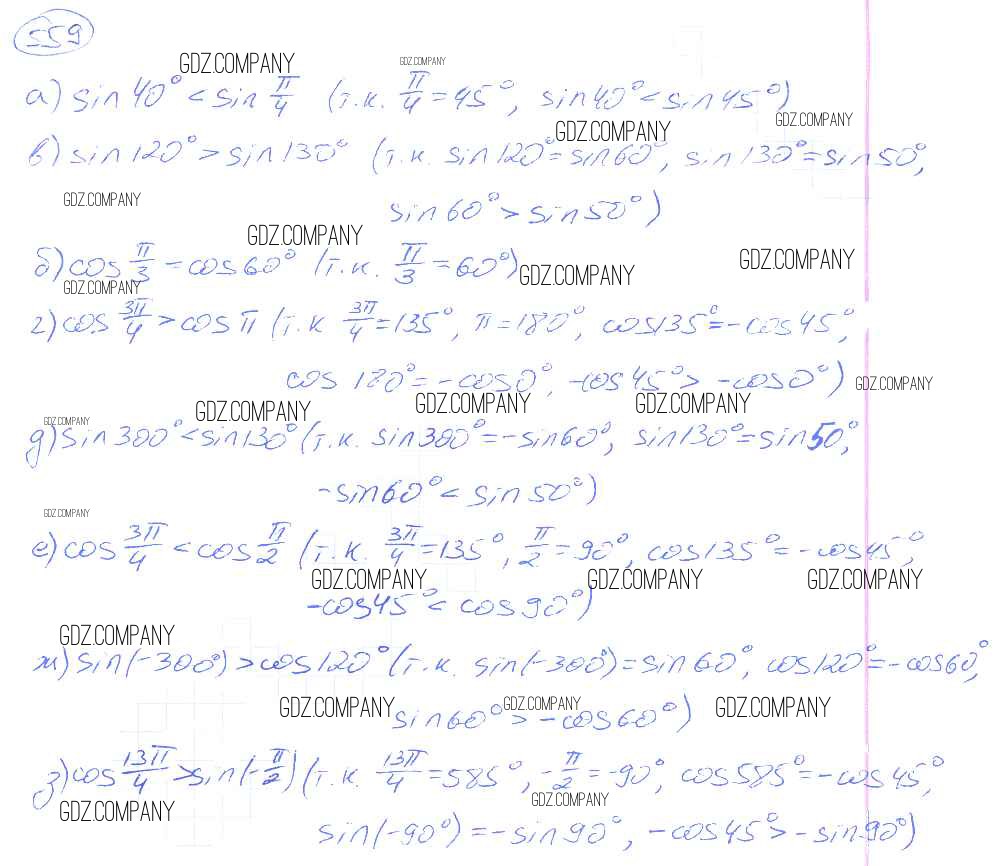 559
GDZ.COMPANY GDZ.COMPANY
а) sin 40° < sin π/4 (т.к. π/4 = 45°, sin 40° < sin 45°)
GDZ.COMPANY GDZ.COMPANY
в) sin 120° > sin 130° (т.к. sin 120° = sin 60°, sin 130° = sin 50°,
GDZ.COMPANY
sin 60° > sin 50°)
GDZ.COMPANY
б) cos π/3 = cos 60° (т.к. π/3 = 60°)
GDZ.COMPANY GDZ.COMPANY
GDZ.COMPANY
г) cos 3π/4 > cos π (т.к 3π/4 = 135°, π = 180°, cos 135° = -cos 45°,
cos 180° = -cos 0°, -cos 45° > -cos 0°)
GDZ.COMPANY
GDZ.COMPANY GDZ.COMPANY GDZ.COMPANY GDZ.COMPANY
д) sin 300° < sin 130° (т.к. sin 300° = -sin 60°, sin 130° = sin 50°,
-sin 60° < sin 50°)
GDZ.COMPANY
е) cos 3π/4 < cos π/2 (т.к. 3π/4 = 135°, π/2 = 90°, cos 135° = -cos 45°,
GDZ.COMPANY GDZ.COMPANY GDZ.COMPANY
-cos 45° < cos 90°)
GDZ.COMPANY
ж) sin(-300°) > cos 120° (т.к. sin(-300°) = sin 60°, cos 120° = -cos 60°,
GDZ.COMPANY GDZ.COMPANY GDZ.COMPANY
sin 60° > -cos 60°)
з) cos 13π/4 > sin(-π/2) (т.к. 13π/4 = 585°, -π/2 = -90°, cos 585° = -cos 45°,
GDZ.COMPANY GDZ.COMPANY
sin(-90°) = -sin 90°, -cos 45° > -sin 90°)